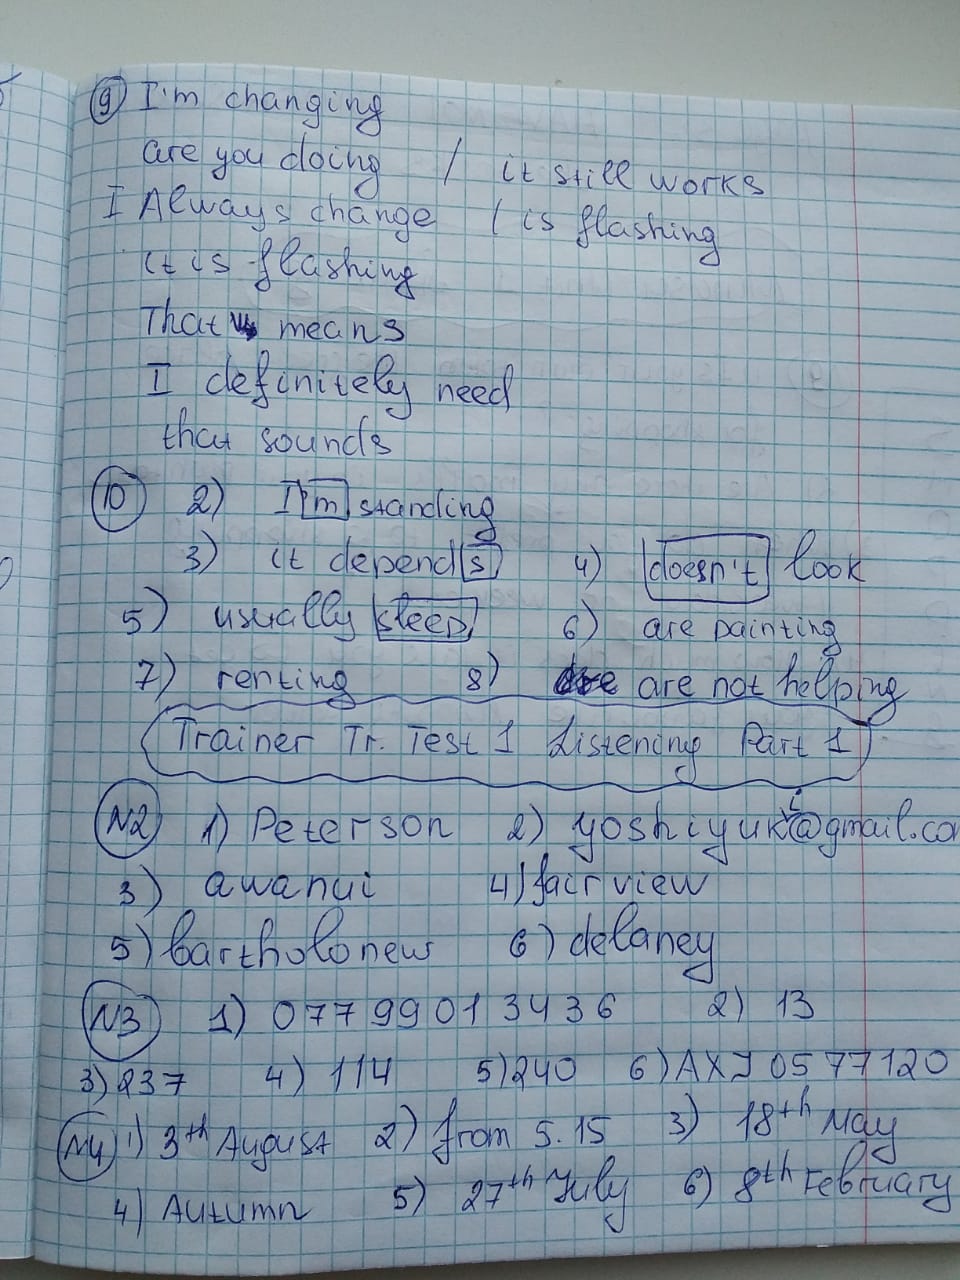 9 I'm changing
are you doing / it still works
I Always change / is flashing
it is flashing
That means
I definitely need
that sounds
10 2) I'm standing
3) it depends 4) doesn't look
5) usually sleep 6) are painting
7) renting 8) are not helping
Trainer Tr. Test 1 Listening Part 1
N2 1) Peterson 2) yoshiyuki@gmail.com
3) awanui 4) fairview
5) bartholonew 6) delaney
N3 1) 07799013436 2) 13
3) 237 4) 114 5) 240 6) AXJ0577120
N4 1) 3th August 2) from 5.15 3) 18th May
4) Autumn 5) 27th July 6) 8th February